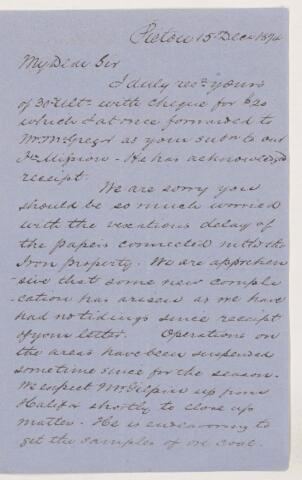 Pictou 15 Dece 1874
My Dear Sir
I duly recd yours
of 30 Ulto with cheque for $20
which I at once forwarded to
Mr McGregor as your subn to our
Fn Mission - He has acknowledged
receipt.
We are sorry you
should be so much worried
with the vexatious delay of
the papers connected with the
Iron property. We are apprehen
-sive that some new compli
-cation has arisen as we have
had no tidings since receipt
of your letter. Operations on
the areas have been suspended
sometime since for the season.
We expect Mr Gilpin up from
Halifax shortly to close up
matters. He is endeavoring to
get the samples of ore coal.